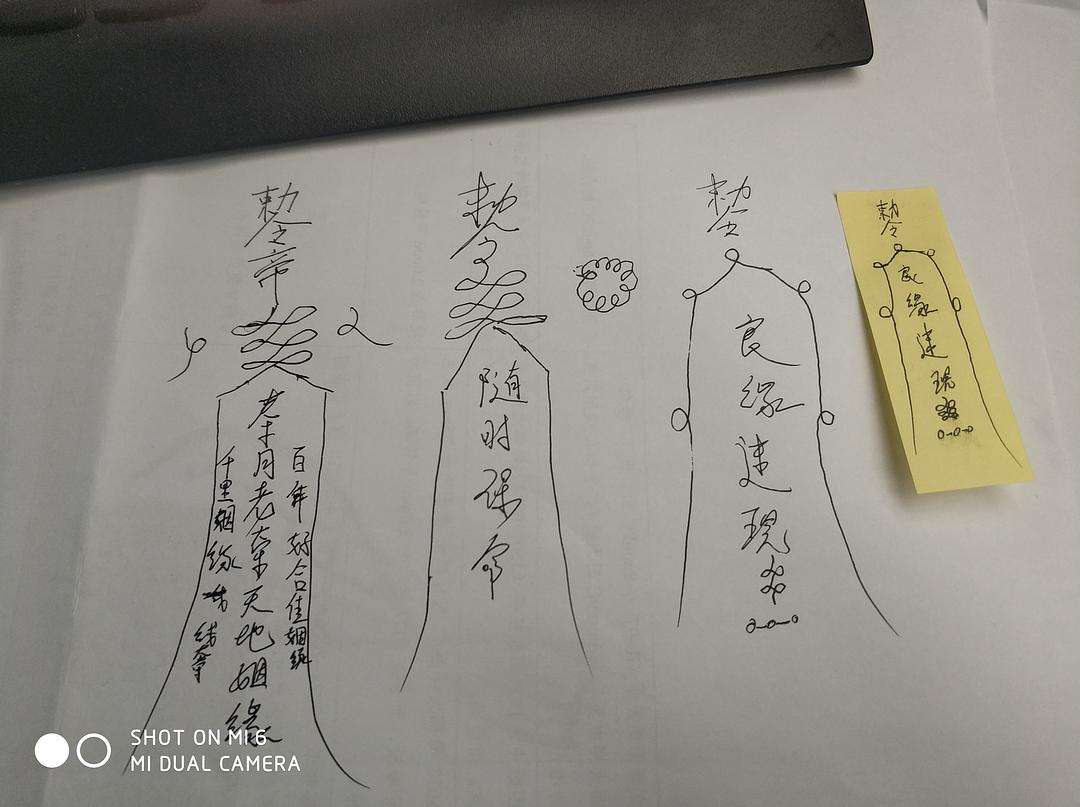 敕令帝
老木月老牵天地姻缘
百年好合佳姻缘
千里姻缘
线牵
敕令
随时保命
敕令
良缘速现
敕令
良缘速现
SHOT ON MI 6
MI DUAL CAMERA